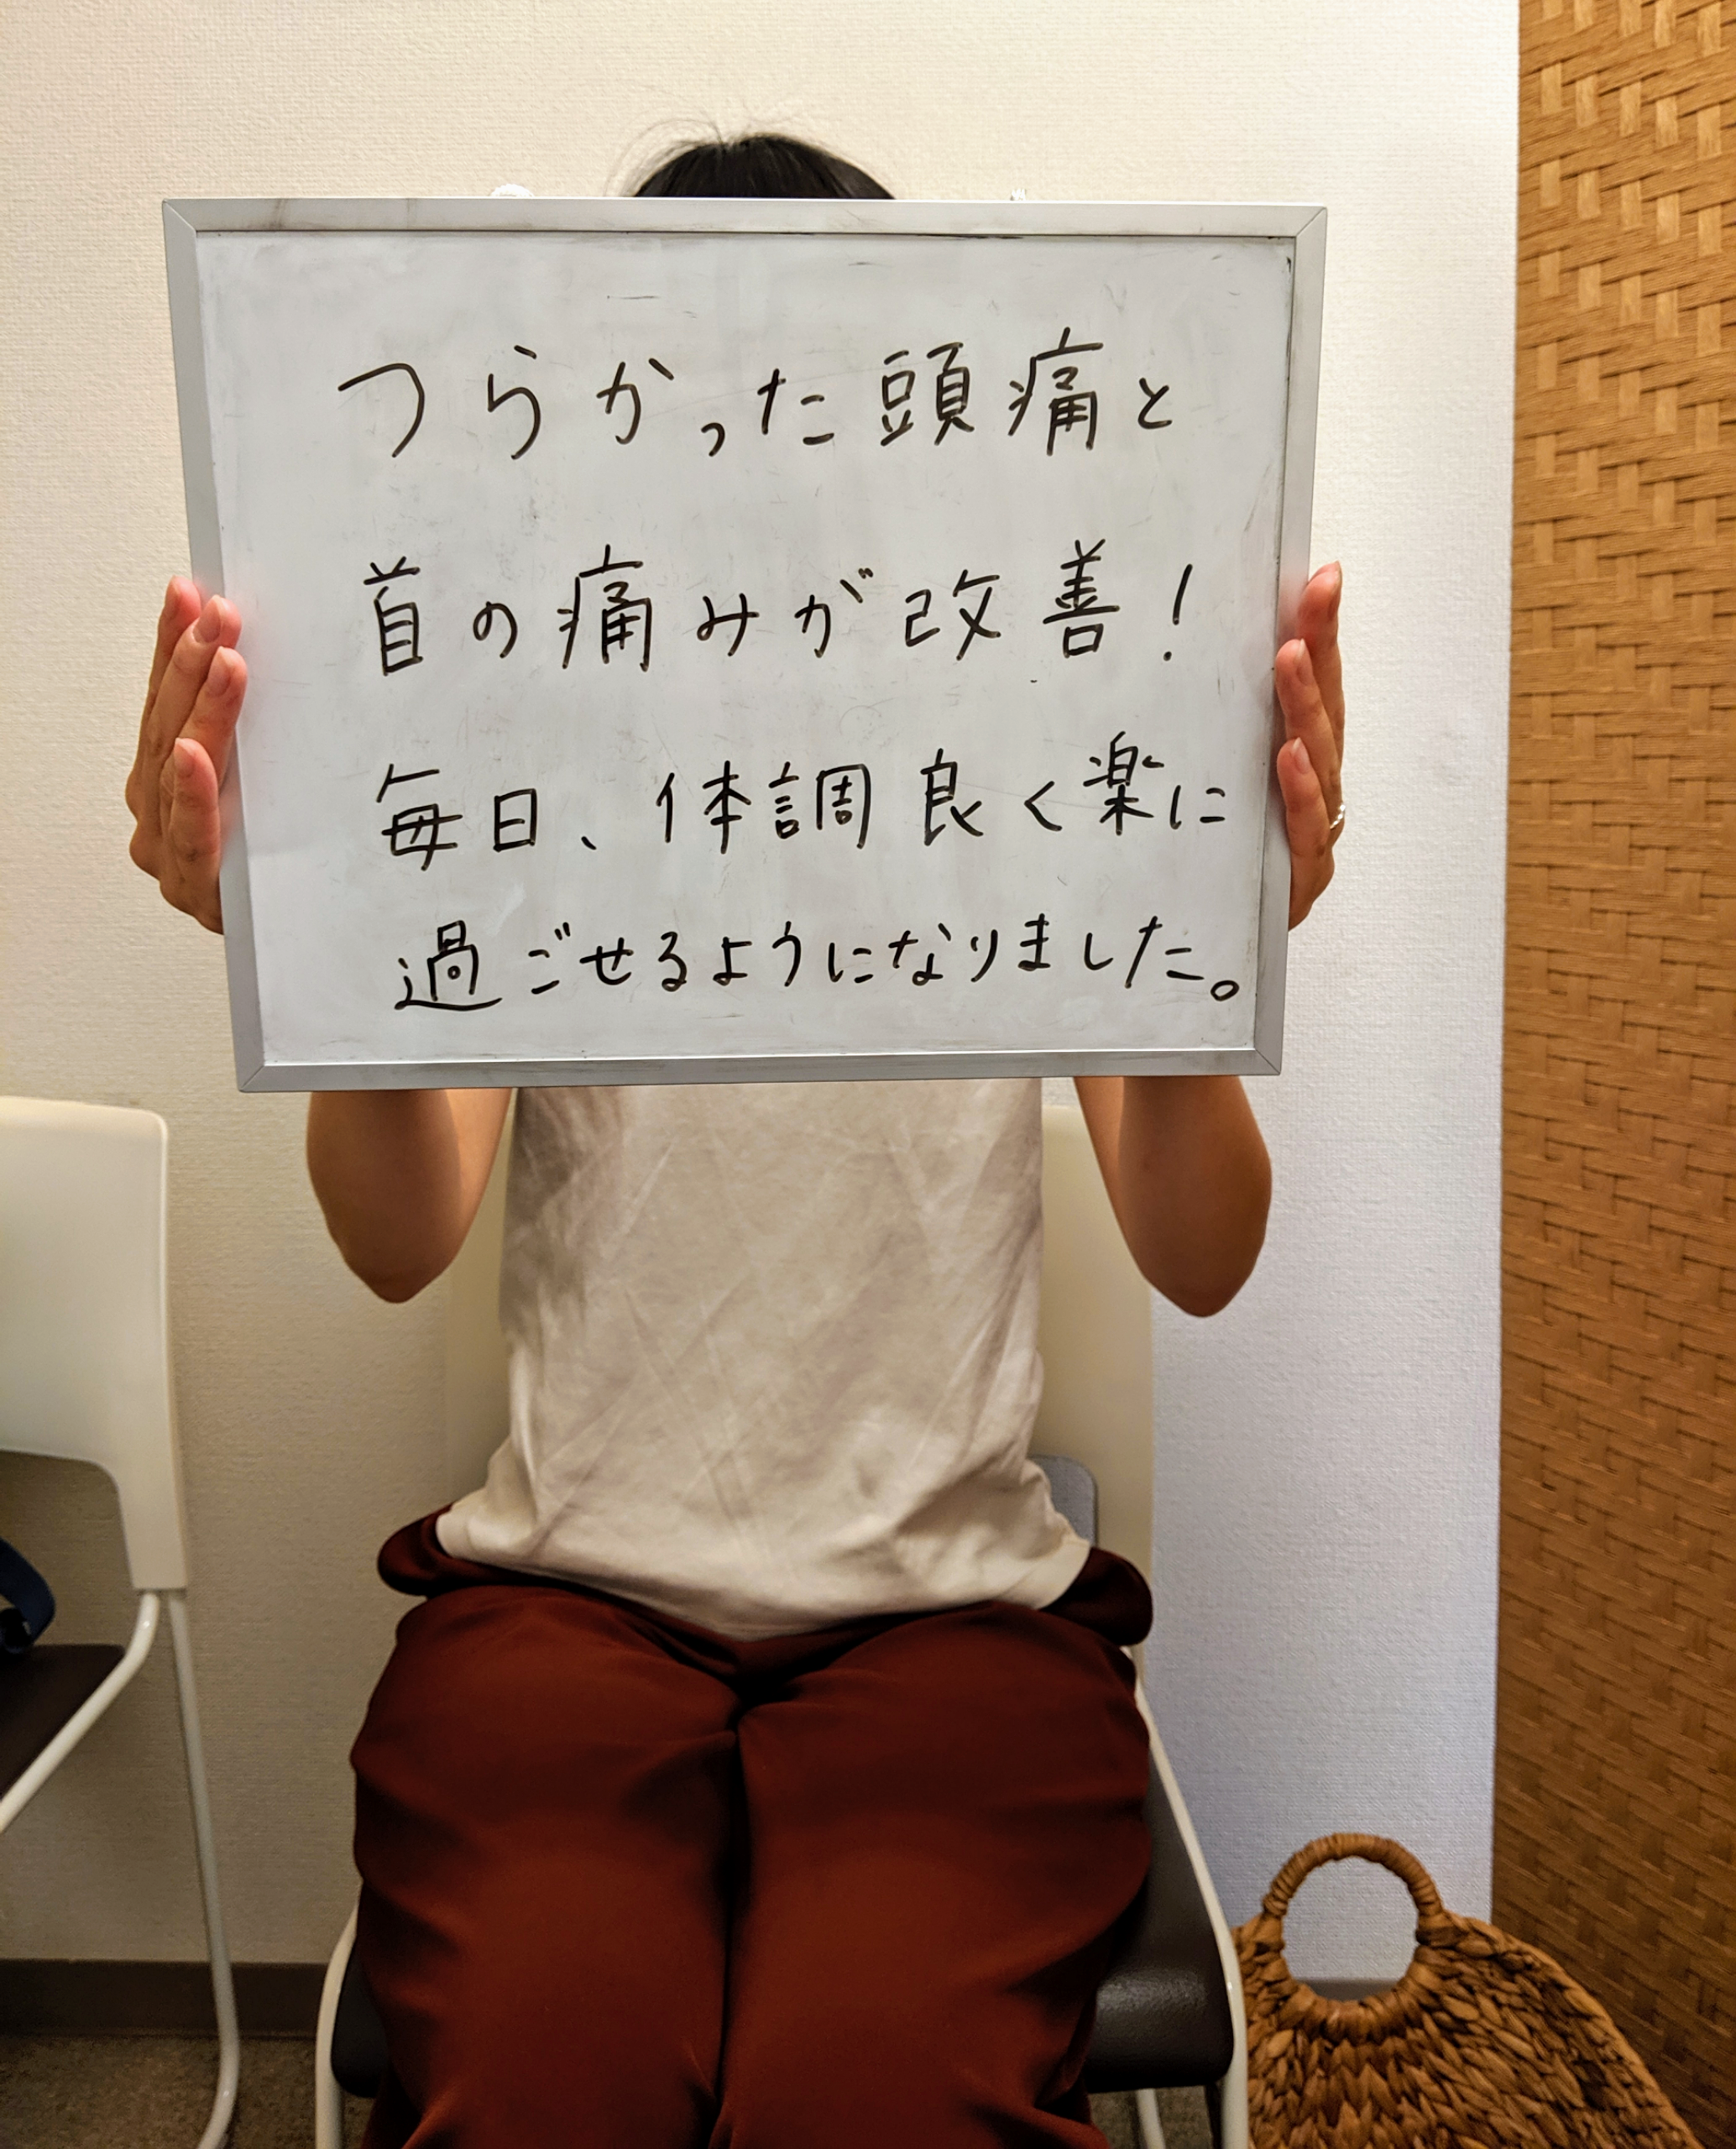 つらかった頭痛と
首の痛みが改善!
毎日、体調良く楽に
過ごせるようになりました。